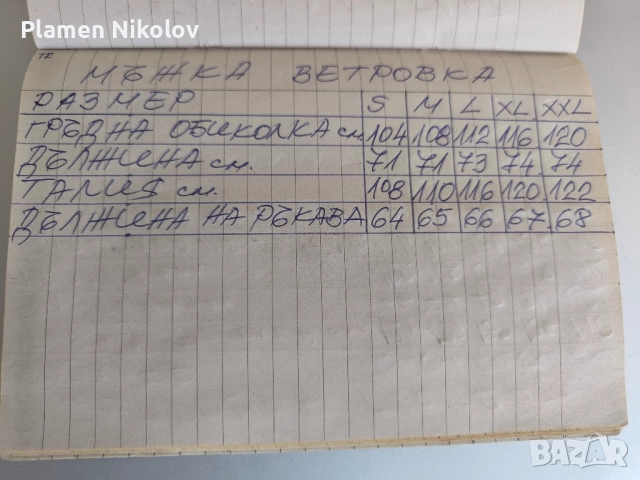 Plamen Nikolov
МЪЖКА ВЕТРОВКА
РАЗМЕР S M L XL XXL
ГРЪДНА ОБИКОЛКА см. 104 108 112 116 120
ДЪЛЖИНА см. 71 71 73 74 74
ТАЛИЯ см. 108 110 116 120 122
ДЪЛЖИНА НА РЪКАВА 64 65 66 67 68
BAZAR